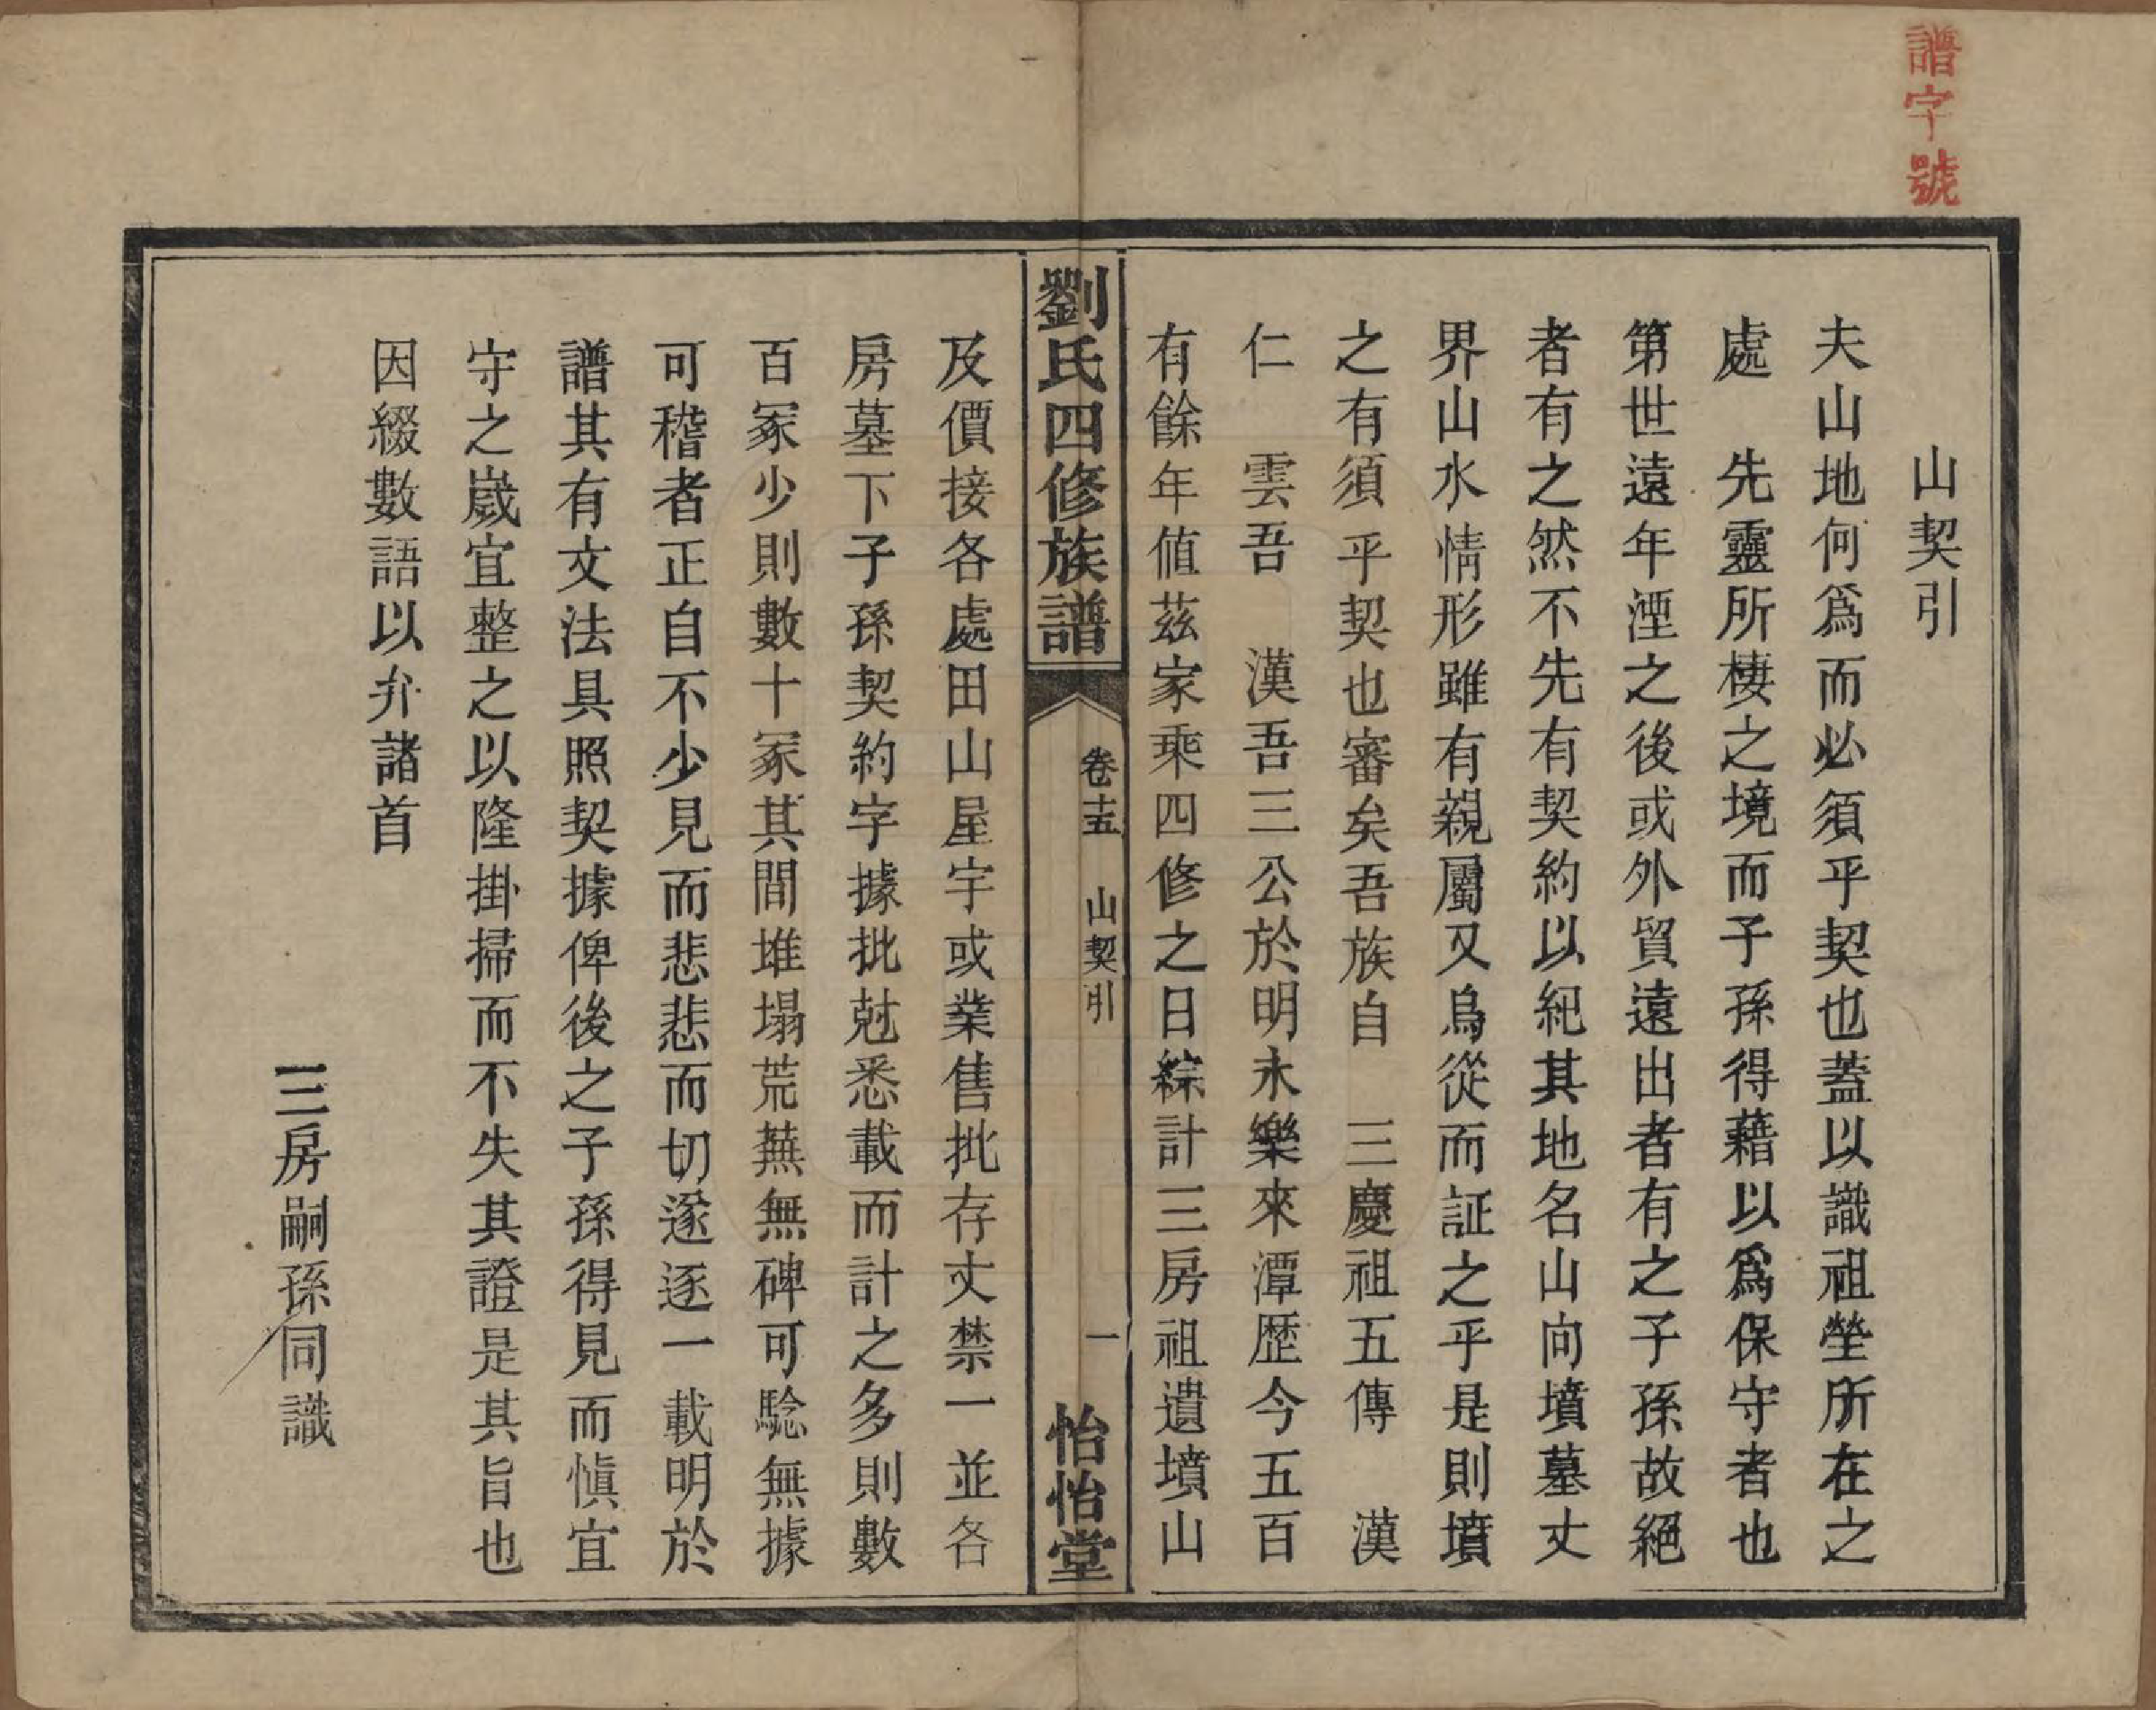 譜字號
山契引
夫山地何爲而必須乎契也蓋以識祖塋所在之
處　先靈所棲之境而子孫得藉以爲保守者也
第世遠年湮之後或外貿遠出者有之子孫故絕
者有之然不先有契約以紀其地名山向墳墓丈
界山水情形雖有親屬又烏從而証之乎是則墳
之有須乎契也審矣吾族自　三慶祖五傳　漢
仁　雲吾　漢吾三公於明永樂來潭歷今五百
有餘年值茲家乘四修之日綜計三房祖遺墳山
劉氏四修族譜
卷十五　山契引
一
怡怡堂
及價接各處田山屋宇或業售批存丈禁一並各
房墓下子孫契約字據批尅悉載而計之多則數
百冢少則數十冢其間堆塌荒蕪無碑可騐無據
可稽者正自不少見而悲悲而切遂逐一載明於
譜其有文法具照契據俾後之子孫得見而愼宜
守之歲宜整之以隆掛掃而不失其證是其旨也
因綴數語以弁諸首
三房嗣孫同識